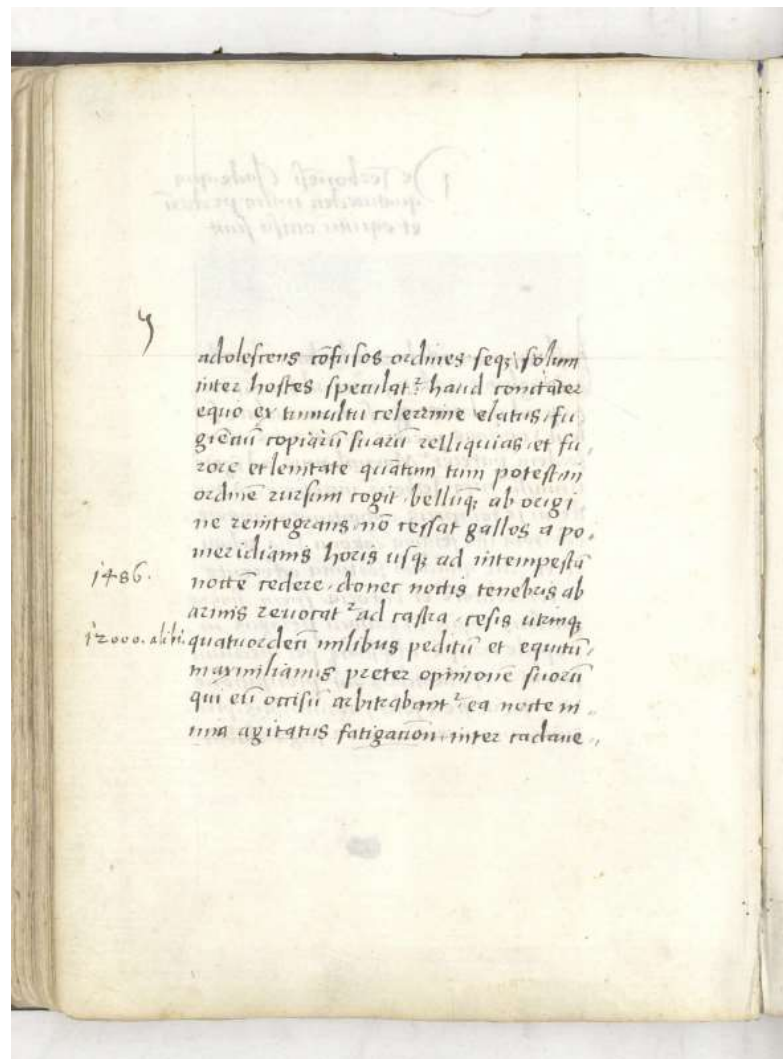 adolescens cōfusos ordines seqꝫ solum
inter hostes speculat᷑. haud conctāter
equo ex tumultu celerrime elatus, fu
gieciū copiarū suarū relliquias, et fu,
rore et lenitate quātum tum potest, in
ordinē rursum cogit, bellūqꝫ ab origi
ne reintegrans, nō cessat gallos a po,
meridianis horis usqꝫ ad intempestā
1486.
noctē cedere, donec noctis tenebris ab
armis revocat᷑ ad castra, cesis utrinqꝫ
12000. alibi.
quatuordeci milibus peditū et equitū,
maximilianus preter opinionē suorū
qui eū occisū arbitrabant᷑ ea nocte in,
mia agitatus fatigatiōn, inter cadave,,